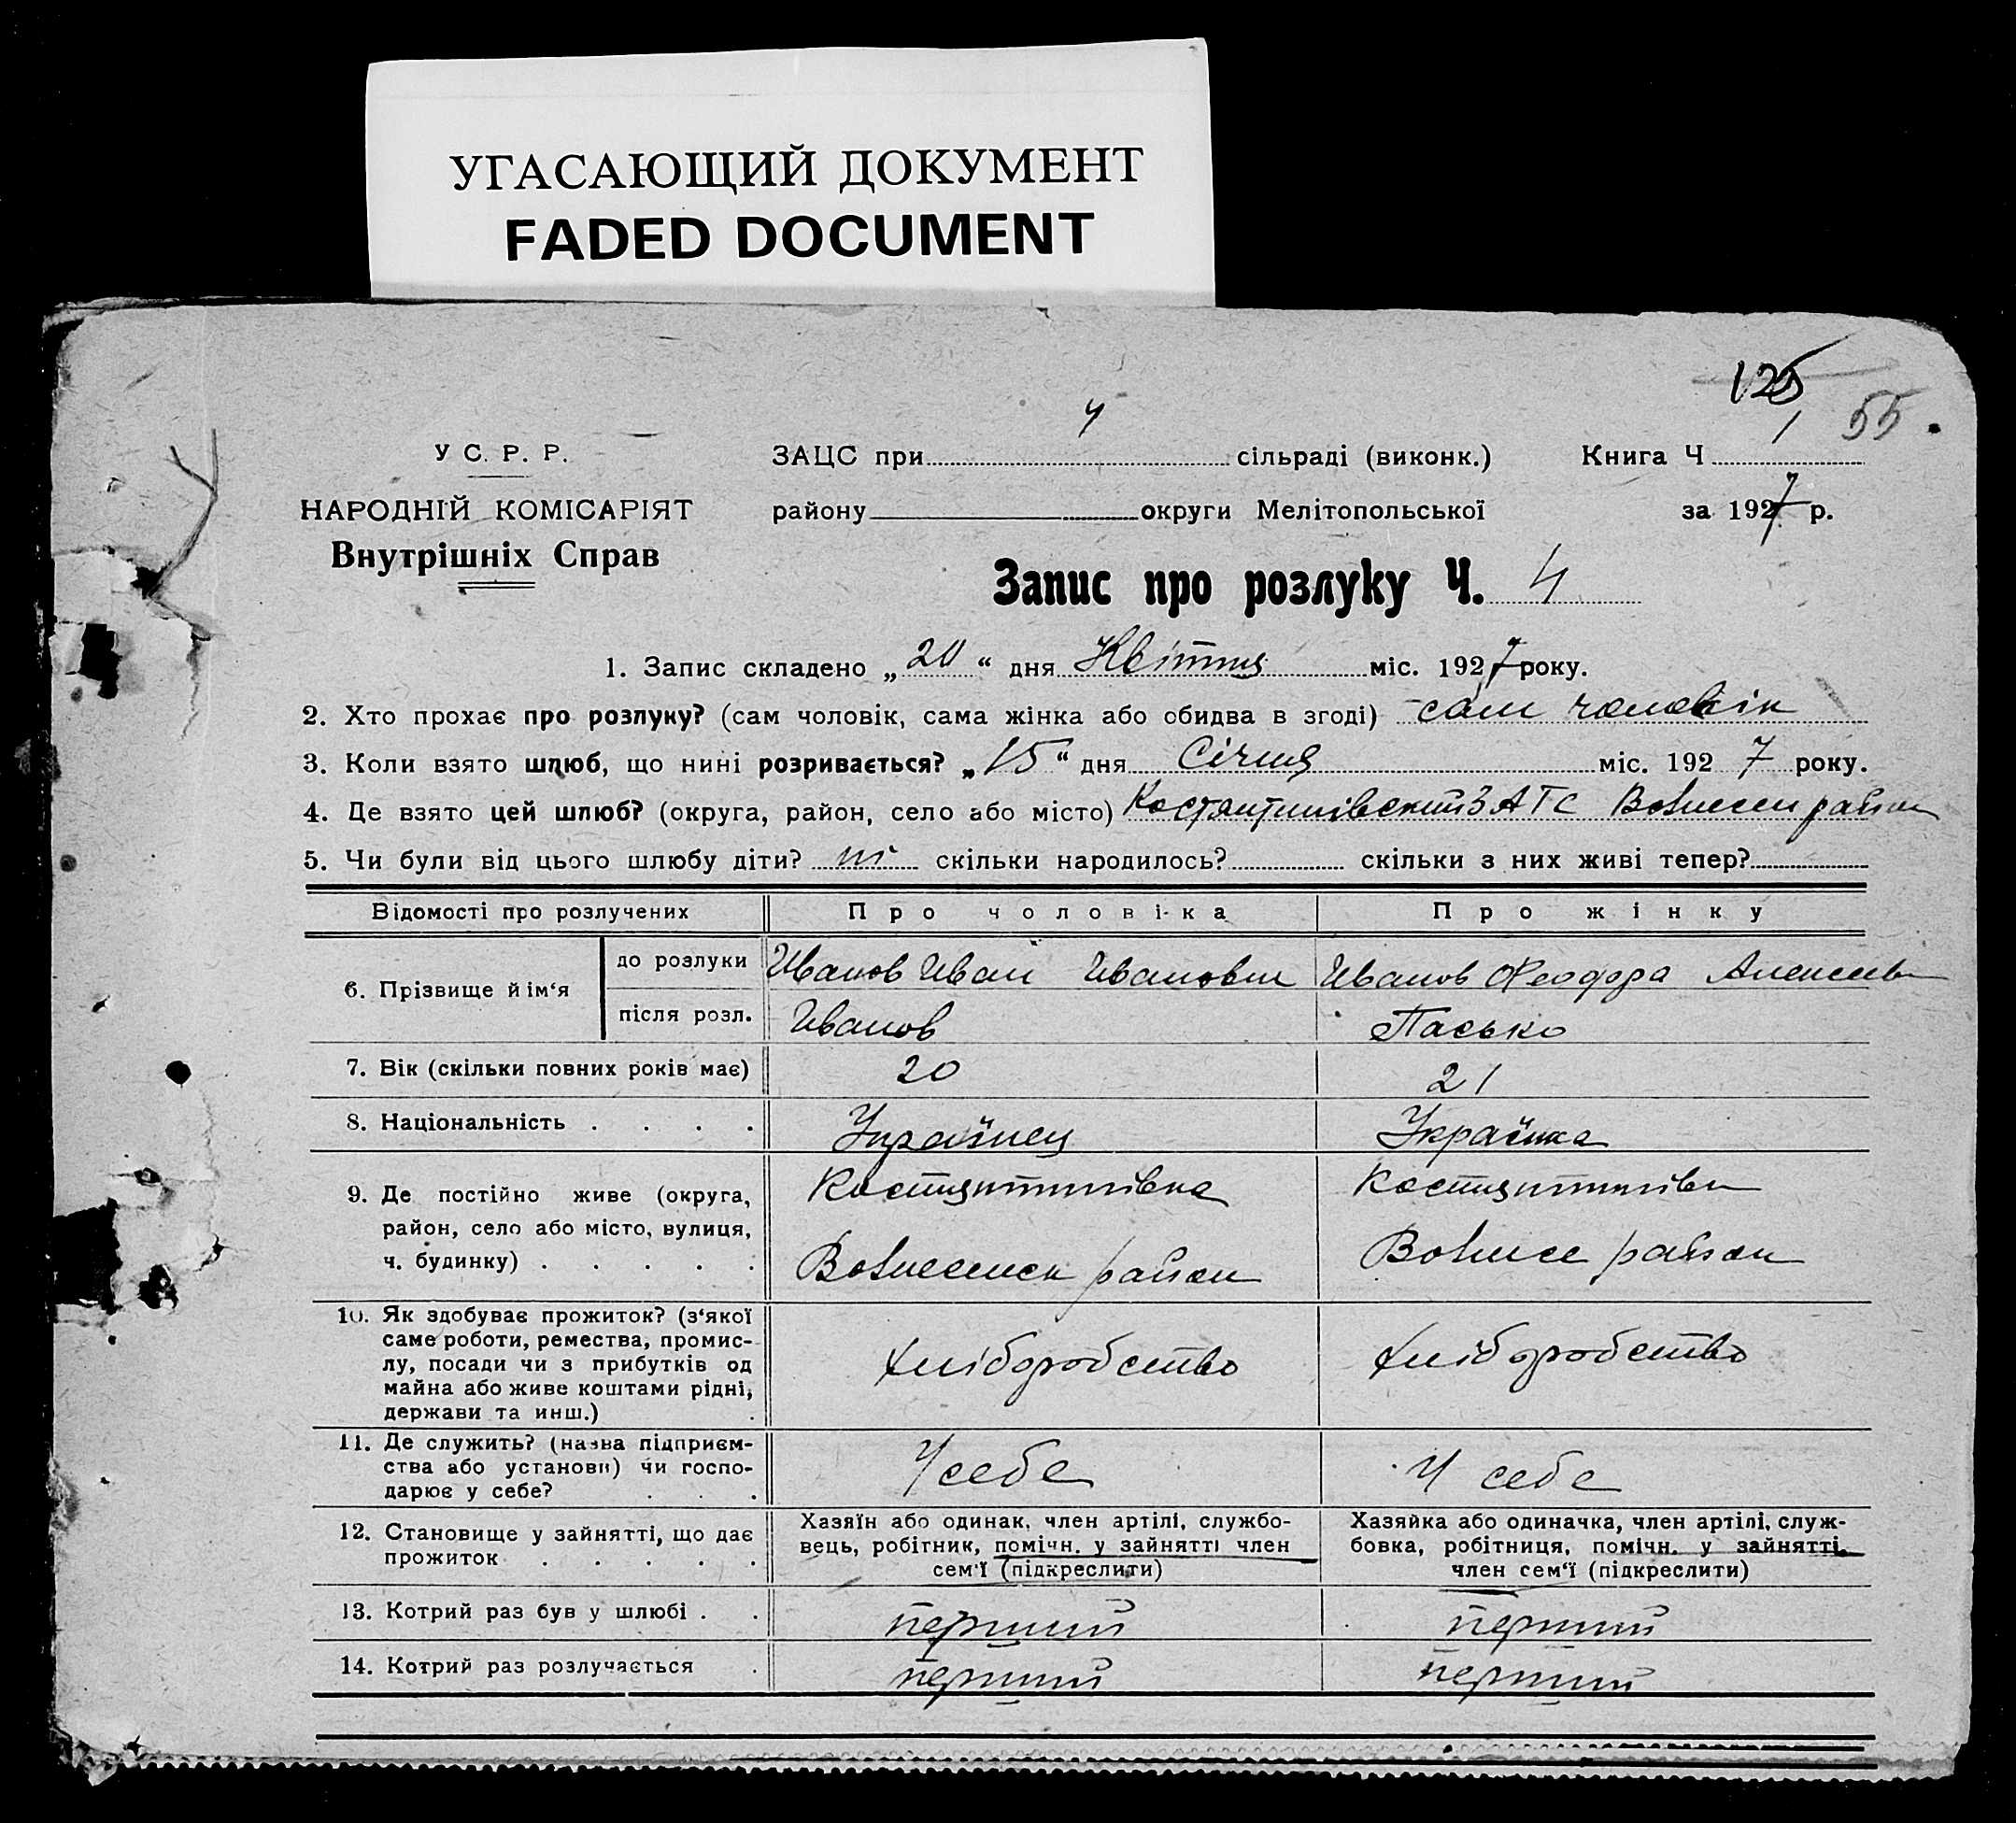 УГАСАЮЩИЙ ДОКУМЕНТ
FADED DOCUMENT
125
55.
У С. Р. Р.
НАРОДНІЙ КОМІСАРІЯТ
Внутрішніх Справ
4
ЗАЦС при сільраді (виконк.)
району округи Мелітопольської
Книга Ч 1
за 1927 р.
Запис про розлуку Ч. 4
1. Запис складено „20“ дня Квітня міс. 1927 року.
2. Хто прохає про розлуку? (сам чоловік, сама жінка або обидва в згоді) сам чоловік
3. Коли взято шлюб, що нині розривається? „15“ дня Січня міс. 1927 року.
4. Де взято цей шлюб? (округа, район, село або місто) Костянтинівский ЗАГС Вознесен район
5. Чи були від цього шлюбу діти? ні скільки народилось? скільки з них живі тепер?
Відомості про розлучених Про чоловіка Про жінку
6. Прізвище й ім‘я
до розлуки Иванов Иван Иванович Иванов Феодора Алексеев
після розл. Иванов Пасько
7. Вік (скільки повних років має) 20 21
8. Національність . . . . Українец Українка
9. Де постійно живе (округа, район, село або місто, вулиця, ч. будинку) . . . . .
Костянтинівка
Вознесенск район
Костянтинівк
Вознесе район
10. Як здобуває прожиток? (з‘якої
саме роботи, ремества, промис-
лу, посади чи з прибутків од
майна або живе коштами рідні,
держави та инш.)
хліборобство хліборобство
11. Де служить? (назва підприєм-
ства або установи) чи госпо-
дарює у себе? . . .
У себе У себе
12. Становище у зайнятті, що дає
прожиток . . . . .
Хазяїн або одинак, член артілі, службо-
вець, робітник, помічн. у зайнятті член
сем‘ї (підкреслити)
Хазяйка або одиначка, член артілі, служ-
бовка, робітниця, помічн. у зайнятті,
член сем‘ї (підкреслити)
13. Котрий раз був у шлюбі . . перший перший
14. Котрий раз розлучається . перший перший